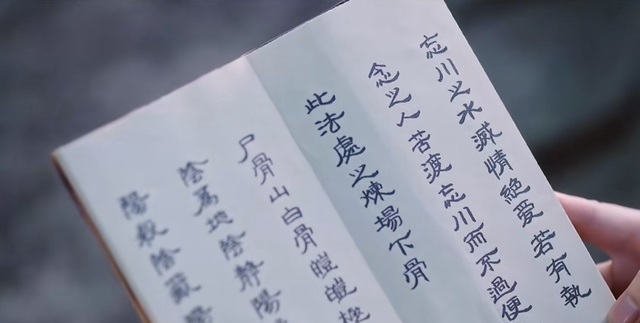 忘川之水滅情絕愛若有執
念之人苦渡忘川而不過便
此法處之煉場下骨
尸骨山白骨皚皚
陰為地陰靜陽
陽殺陰藏陽